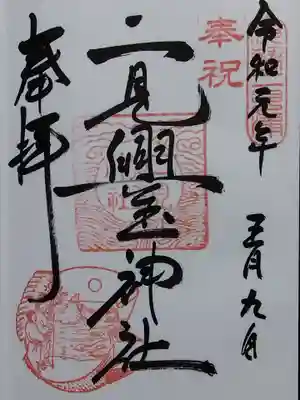 奉祝
令和元年
五月九日
二見興玉神社
奉拝